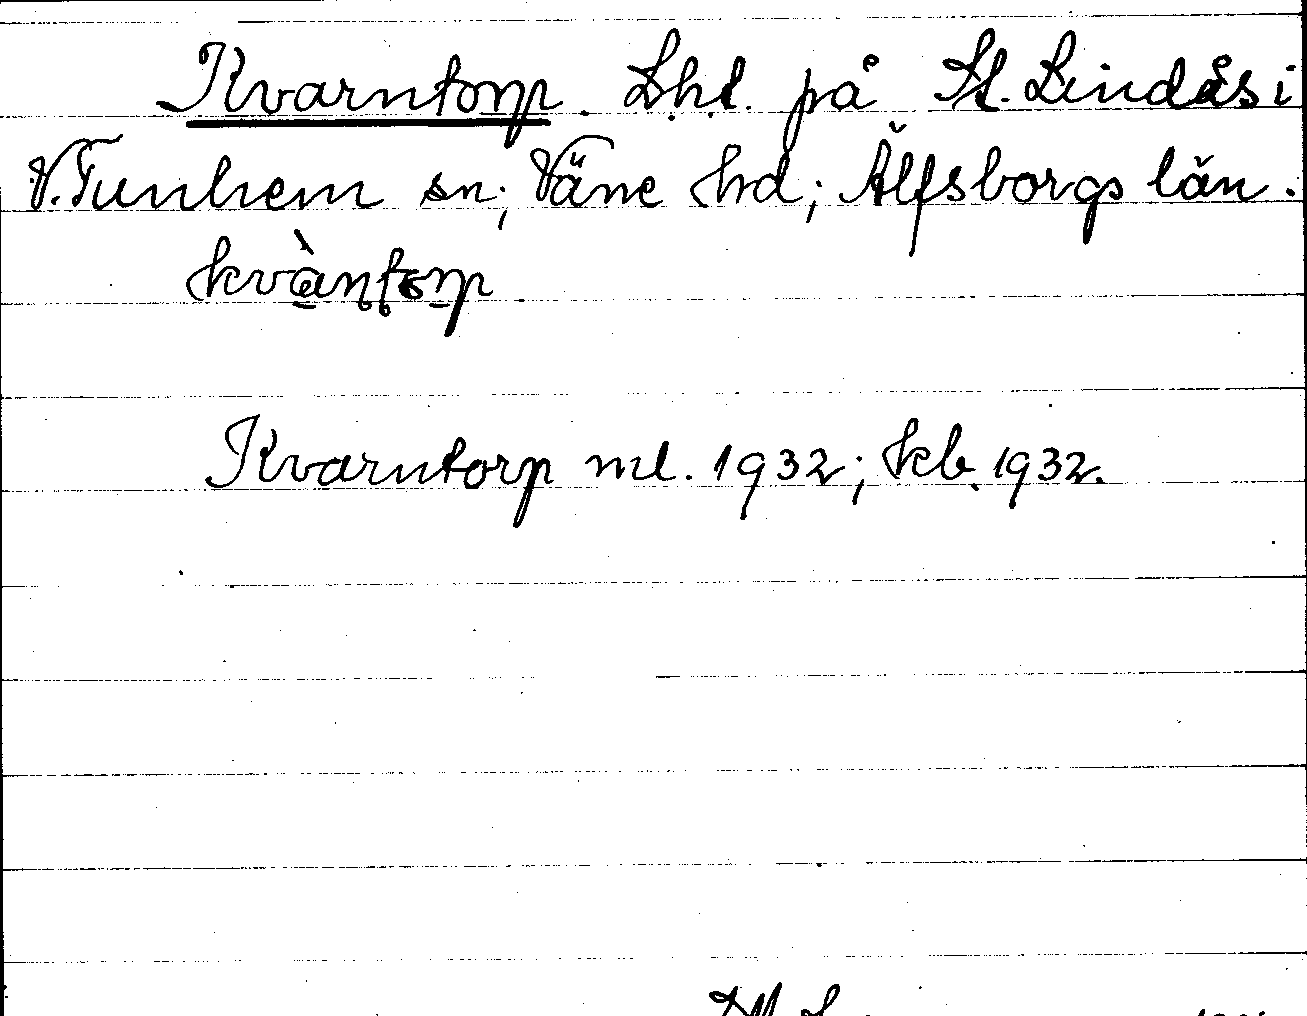 Kvarntorp. Lht. på St. Lindås i
V. Tunhem sn; Väne hd; Älfsborgs län.
kvàntorp
Kvarntorp ml. 1932; kb. 1932.